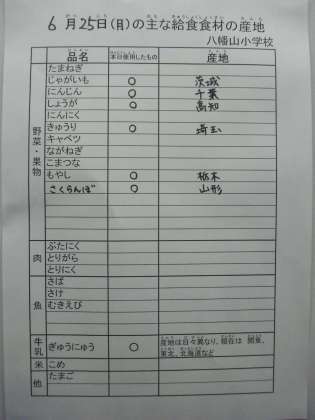 6月25日(月)の主な給食食材の産地
八幡山小学校
品名 本日使用したもの 産地
野菜・果物
たまねぎ
じゃがいも ○ 茨城
にんじん ○ 千葉
しょうが ○ 高知
にんにく
きゅうり ○ 埼玉
キャベツ
ながねぎ
こまつな
もやし ○ 栃木
さくらんぼ ○ 山形
肉
ぶたにく
とりがら
とりにく
魚
さば
さけ
むきえび
牛乳 ぎゅうにゅう ○ 産地は日々異なり、現在は 関東、
東北、北海道など
米 こめ
他 たまご